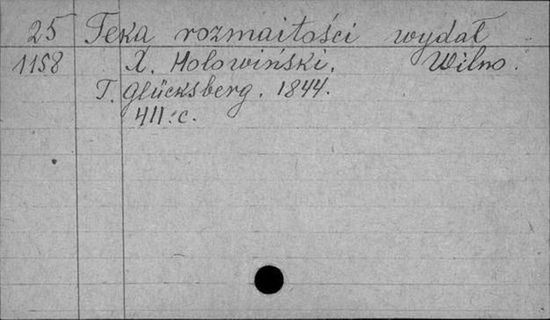 25 Teka rozmaitości wydał
1158 X. Hołowiński. Wilno.
T. Glücksberg. 1844.
411.c.